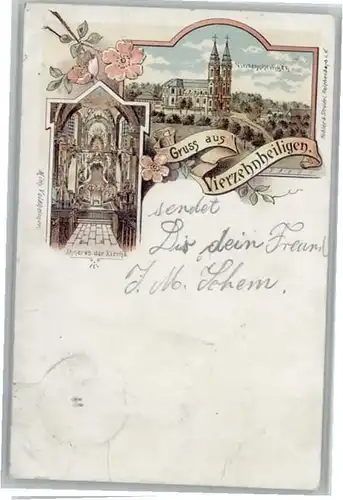 Vierzehnheiligen
Gruss aus
Vierzehnheiligen.
Inneres der Kirche
sendet
Dir dein Freund
J. M. Schem.